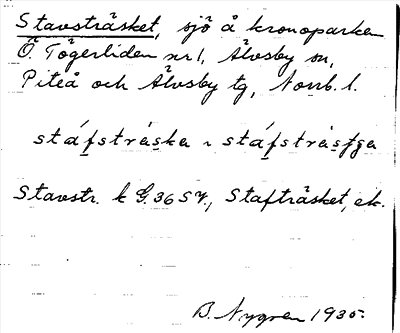 Stavsträsket, sjö å kronoparken
Ö. Tögerliden nr 1, Älvsby sn,
Piteå och Älvsby tg, Norrb. l.
stáfstráska ~ stáfstrásga
Stavstr. k G. 36 SV, Stafträsket, ek.
B. Nygren 1935.